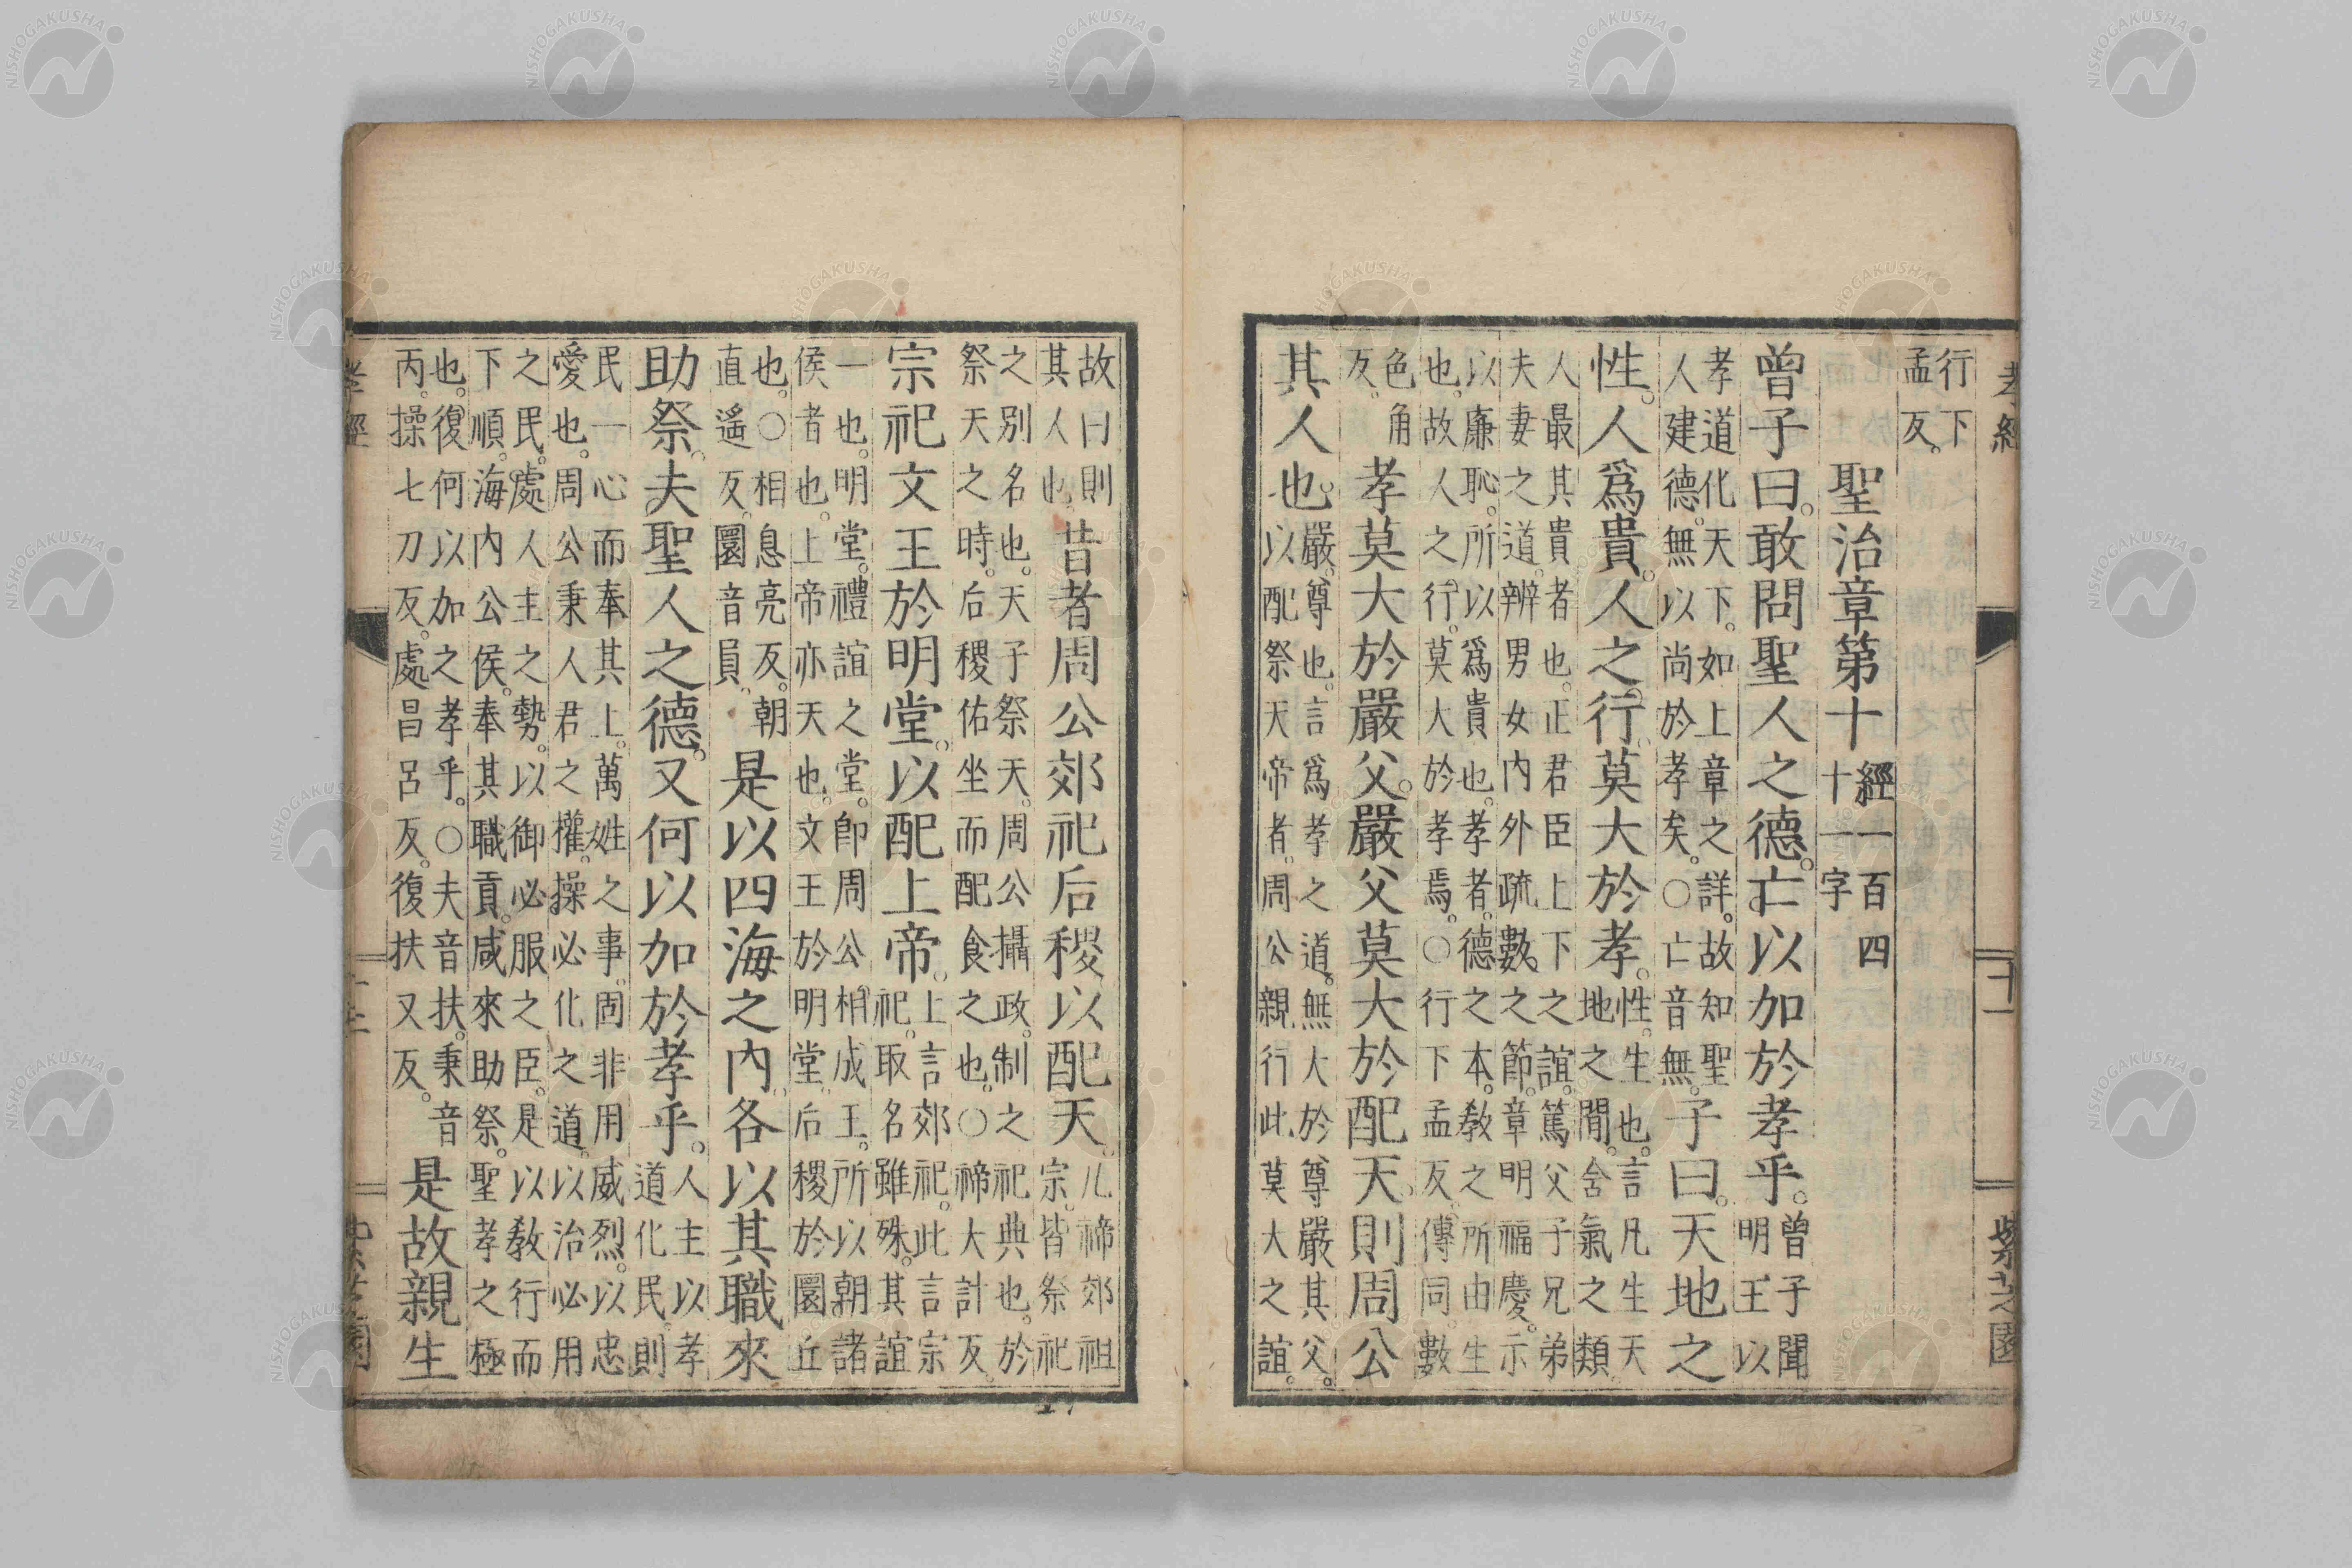 孝經 十一 紫芝園
行下孟反。
聖治章第十 經一百四十一字
曾子曰。敢問聖人之德。亡以加於孝乎。曾子聞明王以
孝道化天下。如上章之詳。故知聖人建德。無以尚於孝矣。○亡音無。子曰。天地之
性。人爲貴。人之行。莫大於孝。性。生也。言凡生天地之閒。舍氣之類。
人最其貴者也。正君臣上下之誼。篤父子兄弟夫妻之道。辨男女內外疏數之節。章明福慶。示
以廉恥。所以爲貴也。孝者。德之本。教之所由生也。故人之行。莫大於孝焉。○行下孟反。傳同。數
色角反。孝莫大於嚴父。嚴父莫大於配天。則周公
其人也。嚴。尊也。言爲孝之道。無大於尊嚴其父。以配祭天帝者。周公親行此莫大之誼。
故曰則其人也。昔者周公郊祀后稷以配天。凡禘郊祖宗。皆祭祀
之別名也。天子祭天。周公攝政。制之祀典也。於祭天之時。后稷佑坐而配食之也。○禘大計反。
宗祀文王於明堂。以配上帝。上言郊祀。此言宗祀。取名雖殊。其誼
一也。明堂。禮誼之堂。卽周公相成王。所以朝諸侯者也。上帝亦天也。文王於明堂。后稷於圜丘
也。○相息亮反。朝直遙反。圜音員。是以四海之內。各以其職來
助祭。夫聖人之德。又何以加於孝乎。人主以孝道化民。則
民一心而奉其上。萬姓之事。固非用威烈。以忠愛也。周公秉人君之權。操必化之道。以治必用
之民。處人主之勢。以御必服之臣。是以教行而下順。海內公侯。奉其職貢。咸來助祭。聖孝之極
也。復何以加之孝乎。○夫音扶。秉音丙。操七刀反。處昌呂反。復扶又反。是故親生
孝經